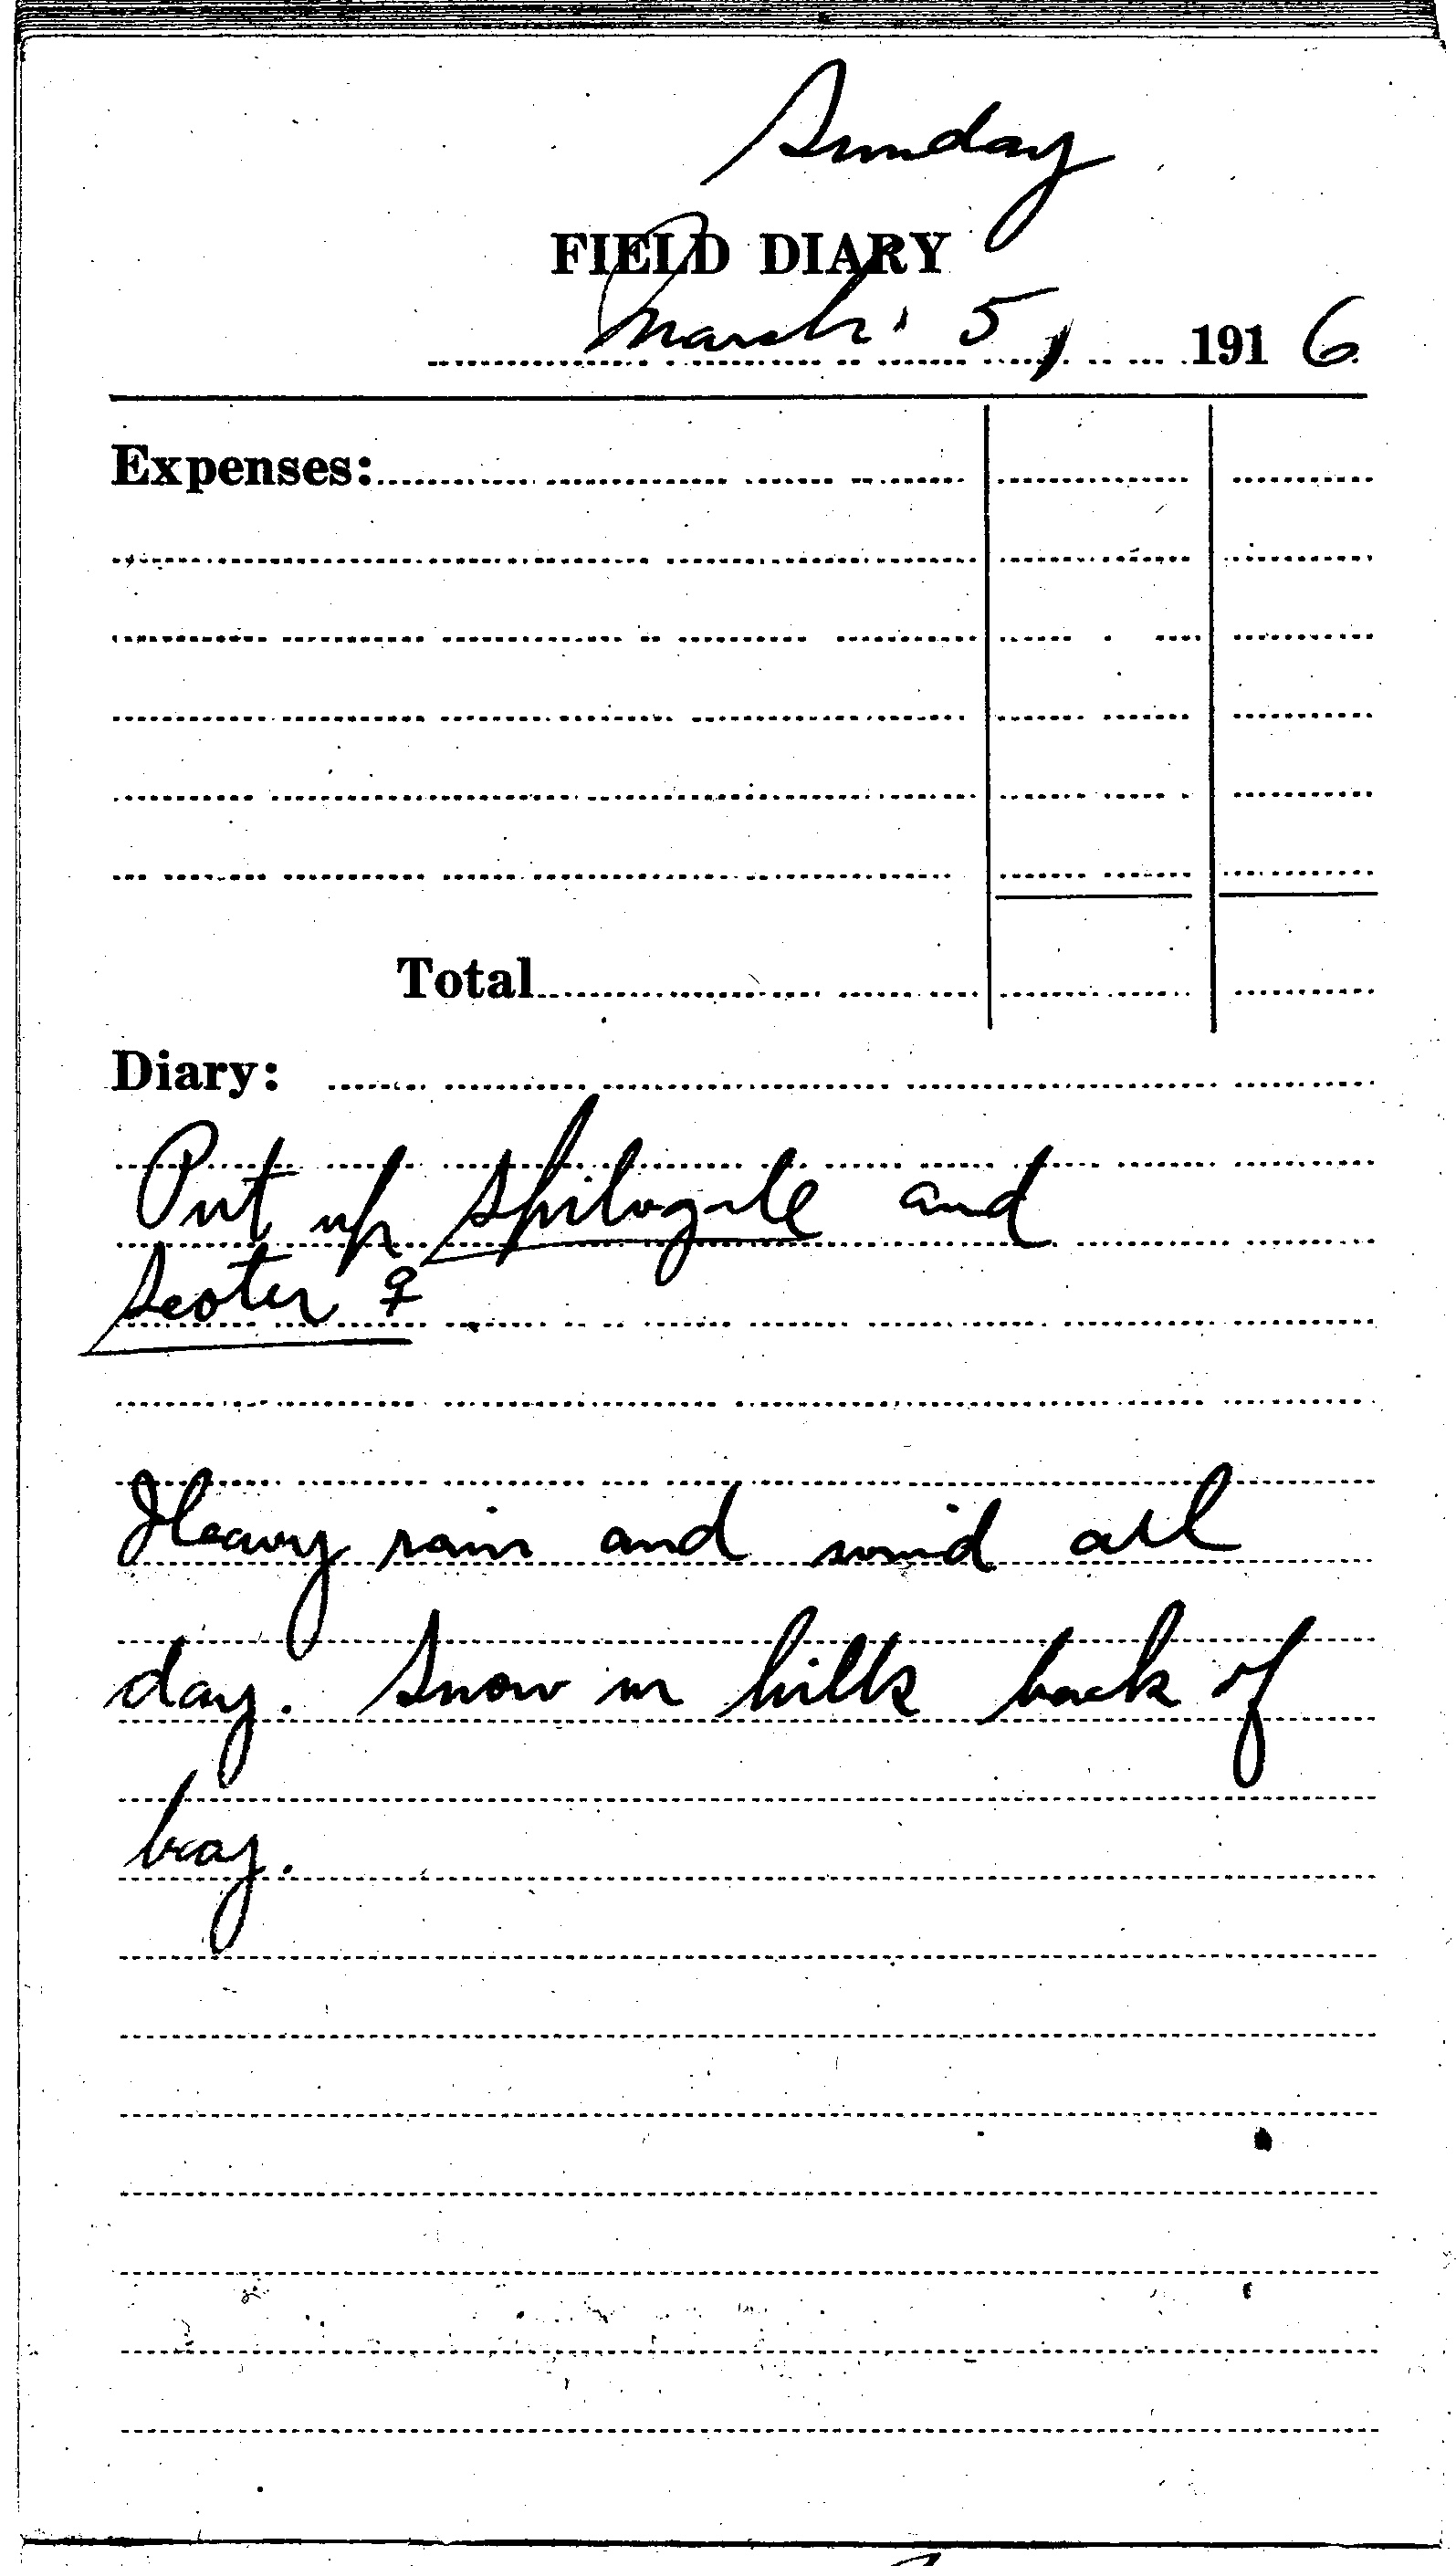 Sunday
FIELD DIARY
March 5, 1916
Expenses:
Total
Diary:
Put up Spilogale and
Scoter ♀.
Heavy rain and wind all
day. Snow in hills back of
bay.